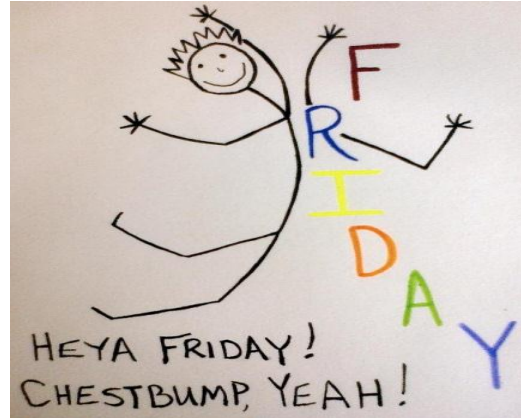 F
R
I
D
A
Y
HEYA FRIDAY!
CHESTBUMP, YEAH!